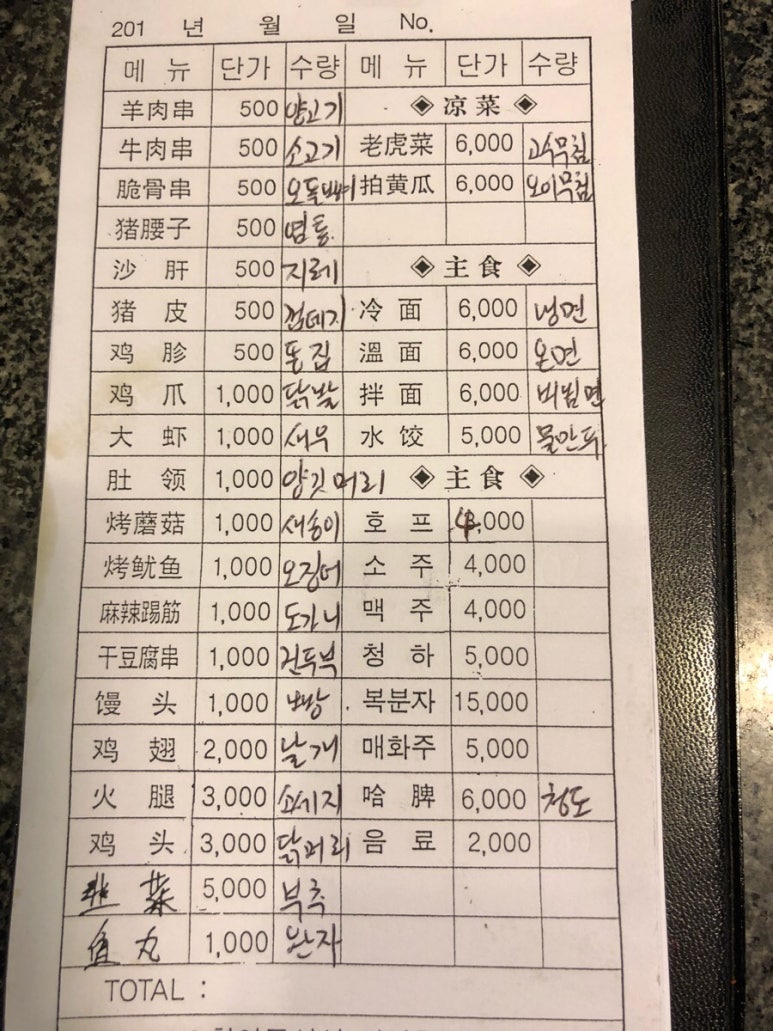 201 년 월 일 No.
메 뉴 단가 수량 메 뉴 단가 수량
羊肉串 500 양고기 ◈ 凉菜 ◈
牛肉串 500 소고기 老虎菜 6,000 고수무침
脆骨串 500 오돌뼈 拍黄瓜 6,000 오이무침
猪腰子 500 염통
沙肝 500 지레 ◈ 主食 ◈
猪皮 500 껍데기 冷面 6,000 냉면
鸡胗 500 똥집 溫面 6,000 온면
鸡爪 1,000 닭발 拌面 6,000 비빔면
大虾 1,000 새우 水饺 5,000 물만두
肚领 1,000 양깃머리 ◈ 主食 ◈
烤蘑菇 1,000 새송이 호프 ,000
烤鱿鱼 1,000 오징어 소주 4,000
麻辣踢筋 1,000 도가니 맥주 4,000
干豆腐串 1,000 건두부 청하 5,000
馒头 1,000 빵 복분자 15,000
鸡翅 2,000 날개 매화주 5,000
火腿 3,000 소세지 哈脾 6,000 청도
鸡头 3,000 닭머리 음료 2,000
韭菜 5,000 부추
鱼丸 1,000 완자
TOTAL :